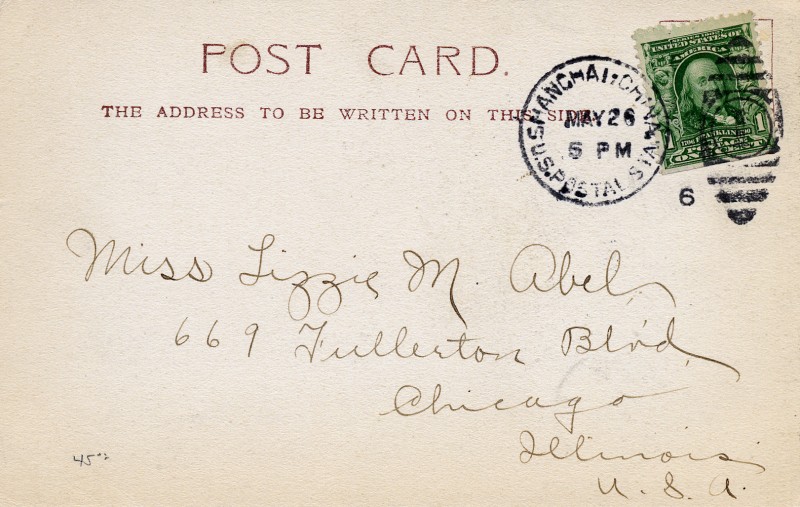 POST CARD.
THE ADDRESS TO BE WRITTEN ON THIS SIDE.
SHANGHAI·CHINA
MAY 26
5 PM
U.S. POSTAL STA.
6
SERIES 1902
UNITED STATES OF
AMERICA
1706 FRANKLIN 1790
ONE CENT
1
Miss Lizzie M. Abel,
669 Fullerton Blvd,
Chicago
Illinois
U. S. A.
45⁰⁰